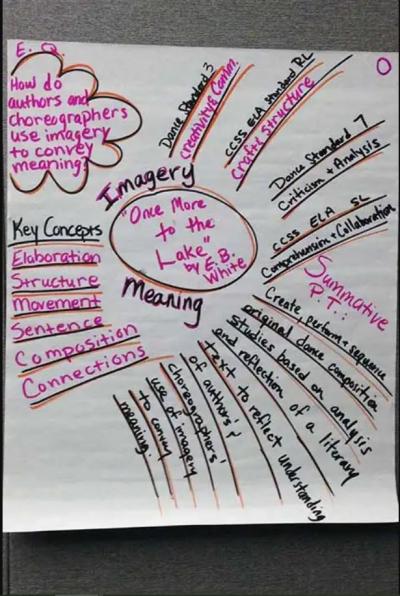 E. Q.
How do
authors and
choreographers
use imagery
to convey
meaning?
Dance Standard 3
Creativity & Comm.
CCSS ELA Standard RL
Craft & Structure
Dance Standard 7
Criticism + Analysis
CCSS ELA SL
Comprehension + Collaboration
Imagery
"Once More
to the
Lake"
by E.B.
White
Meaning
Key Concepts
Elaboration
Structure
Movement
Sentence
Composition
Connections
Summative
P.T.:
Create, perform + sequence
original dance composition
studies based on analysis
and reflection of a literary
text to reflect understanding
of authors' &
choreographers'
use of imagery
to convey
meaning.